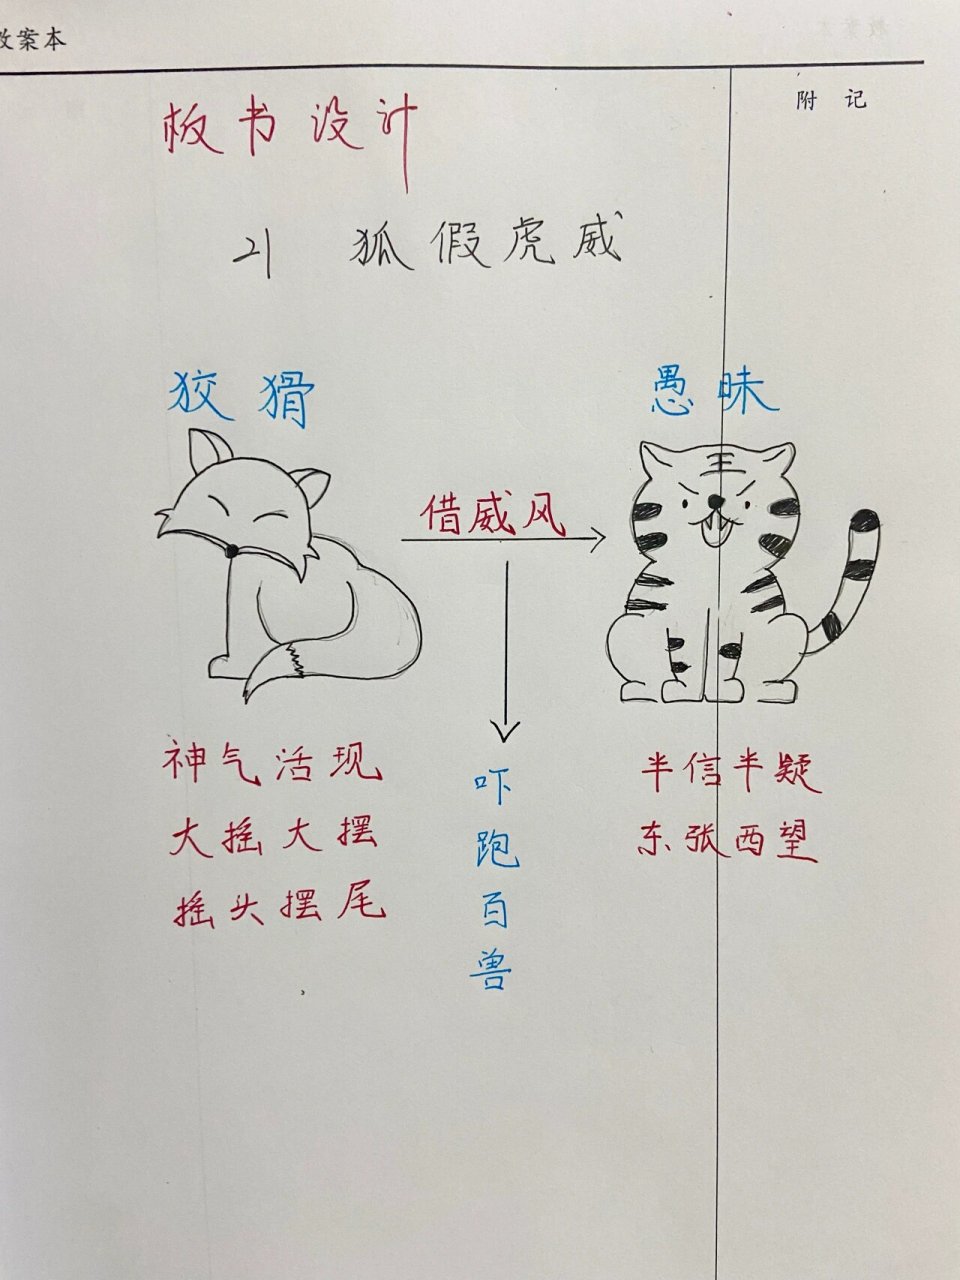 教案本
附 记
板书设计
21 狐假虎威
狡猾
愚昧
借威风
神气活现
大摇大摆
摇头摆尾
吓跑百兽
半信半疑
东张西望